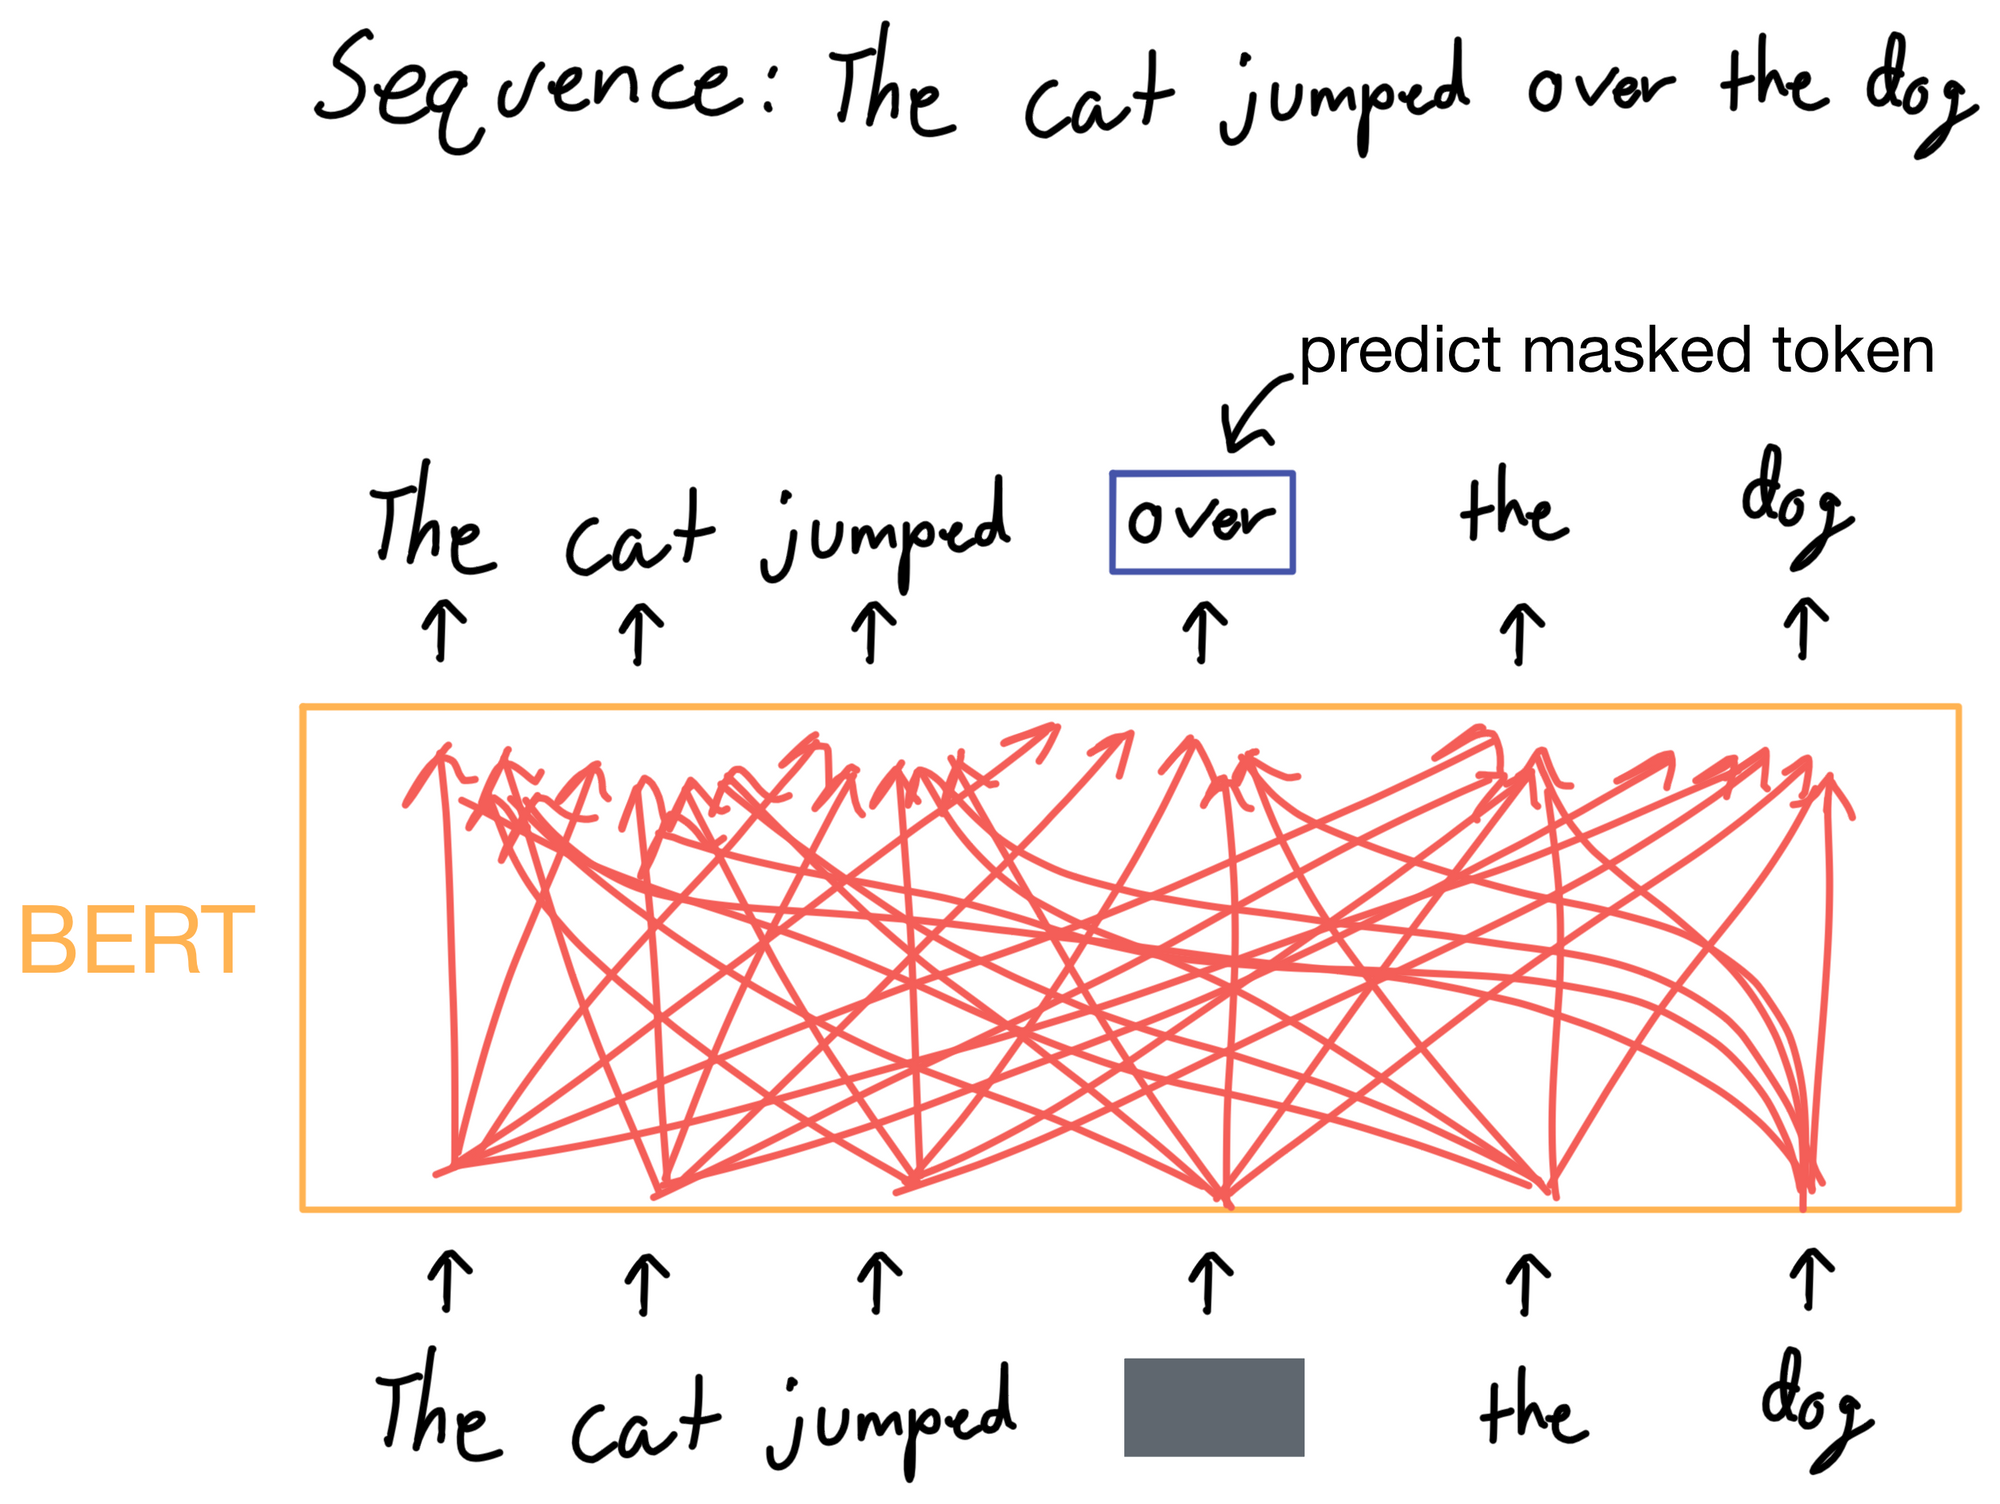 Sequence: The cat jumped over the dog
predict masked token
The cat jumped over the dog
BERT
The cat jumped the dog